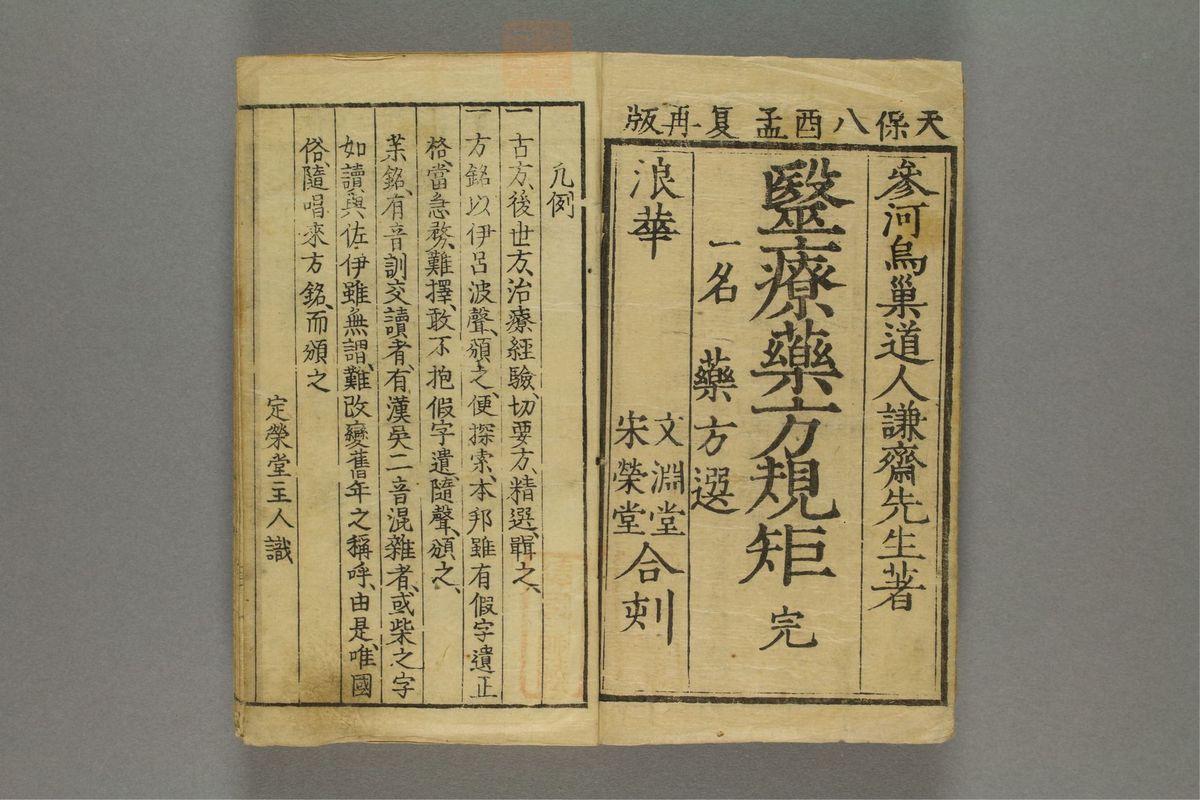 天保八酉孟夏再版
參河烏巢道人謙齋先生著
醫療藥方規矩 完
一名 藥方選
浪華 文淵堂
宋榮堂 合刻
凡例
一古方、後世方、治療經驗、切要方、精選、輯之、
一方銘以伊呂波聲、頒之、便探索、本邦雖有假字遺正
格、當急務、難擇、敢不抱假字遺、隨聲、頒之、
葉銘、有音訓交讀者、有漢吳二音混雜者、或柴之字
如讀與佐伊雖無謂、難改變舊年之稱呼、由是、唯國
俗、隨唱來方銘、而頒之
定榮堂主人識